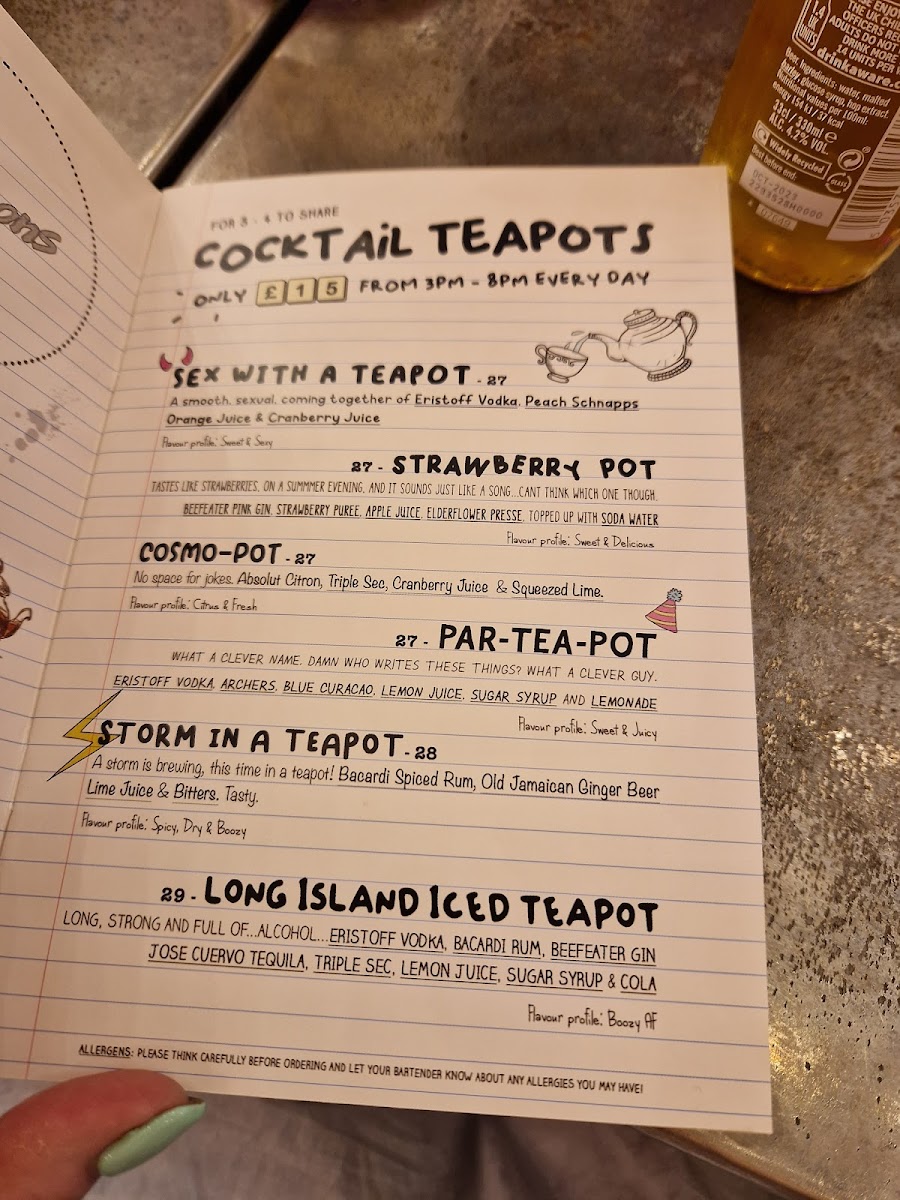 ons
FOR 3 - 4 TO SHARE
COCKTAiL TEAPOTS
ONLY £15 FROM 3PM - 8PM EVERY DAY
SEX WITH A TEAPOT - 27
A smooth, sexual, coming together of Eristoff Vodka, Peach Schnapps
Orange Juice & Cranberry Juice
Flavour profile: Sweet & Sexy
27 - STRAWBERRY POT
TASTES LIKE STRAWBERRIES, ON A SUMMMER EVENING, AND IT SOUNDS JUST LIKE A SONG...CANT THINK WHICH ONE THOUGH.
BEEFEATER PINK GIN, STRAWBERRY PUREE, APPLE JUICE, ELDERFLOWER PRESSE, TOPPED UP WITH SODA WATER
Flavour profile: Sweet & Delicious
COSMO-POT - 27
No space for jokes. Absolut Citron, Triple Sec, Cranberry Juice & Squeezed Lime.
Flavour profile: Citrus & Fresh
27 - PAR-TEA-POT
WHAT A CLEVER NAME. DAMN WHO WRITES THESE THINGS? WHAT A CLEVER GUY.
ERISTOFF VODKA, ARCHERS, BLUE CURACAO, LEMON JUICE, SUGAR SYRUP AND LEMONADE
Flavour profile: Sweet & Juicy
STORM IN A TEAPOT - 28
A storm is brewing, this time in a teapot! Bacardi Spiced Rum, Old Jamaican Ginger Beer
Lime Juice & Bitters. Tasty.
Flavour profile: Spicy, Dry & Boozy
29 - LONG ISLAND ICED TEAPOT
LONG, STRONG AND FULL OF...ALCOHOL...ERISTOFF VODKA, BACARDI RUM, BEEFEATER GIN
JOSE CUERVO TEQUILA, TRIPLE SEC, LEMON JUICE, SUGAR SYRUP & COLA
Flavour profile: Boozy AF
ALLERGENS: PLEASE THINK CAREFULLY BEFORE ORDERING AND LET YOUR BARTENDER KNOW ABOUT ANY ALLERGIES YOU MAY HAVE!
1.4
UK
UNITS
THE UK CH
OFFICERS RE
ADULTS DO NOT
DRINK MORE
14 UNITS PER
drinkaware.c
Beer. Ingredients: water, malted
glucose syrup, hop extract.
values per 100ml:
energy 154 kJ / 37 kcal
33cl / 330ml e
ALC. 4.2% VOL.
Widely Recycled
GLASS
Best before end:
OCT-2023